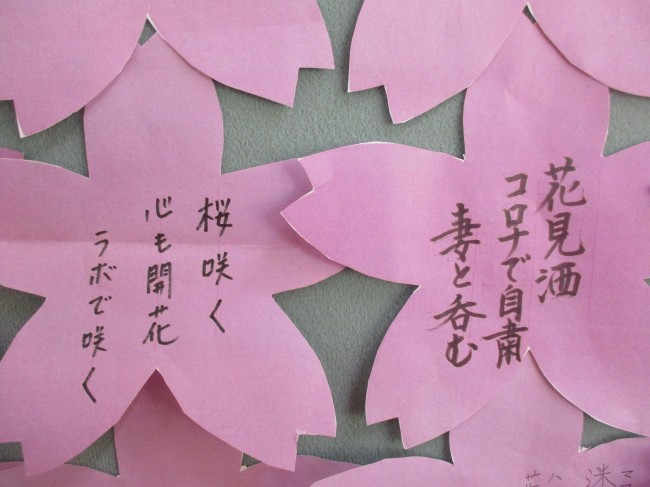 花見酒
コロナで自粛
妻と呑む
桜咲く
心も開花
ラボで咲く